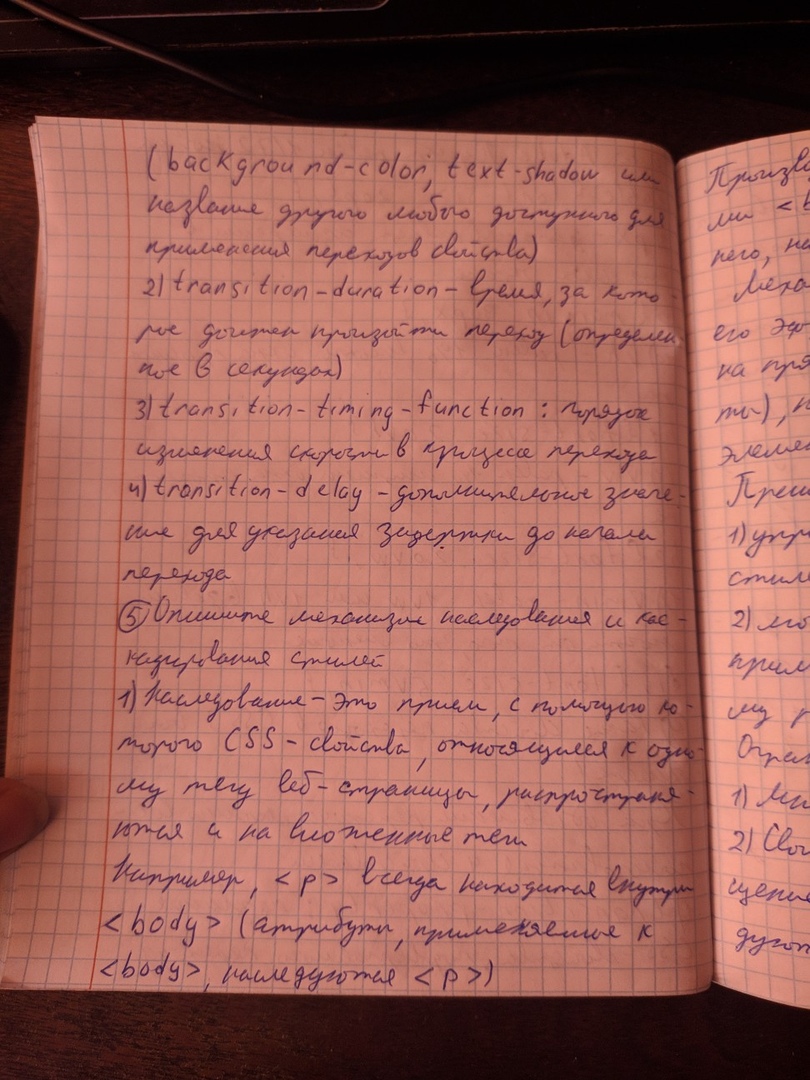 (background-color, text-shadow или
название другого любого доступного для
применения переходов свойства)
2) transition-duration - время, за кото-
рое должен произойти переход (определен
ное в секундах)
3) transition-timing-function: порядок
изменения скорости в процессе перехода
4) transition-delay - дополнительное значе-
ние для указания задержки до начала
перехода
⑤ Опишите механизм наследования и кас-
кадирования стилей
1) Наследование - это прием, с помощью ко-
торого CSS-свойства, относящиеся к одно-
му тегу веб-страницы, распространя-
ются и на вложенные теги
Например, <p> всегда находится внутри
<body> (атрибуты, применяемые к
<body>, наследуются <p>)
ми <b
него, на
его эф
на пря
ты), п
элемен
1) упр
стиле
2)
прим
му р
1)
2) Сво
щение